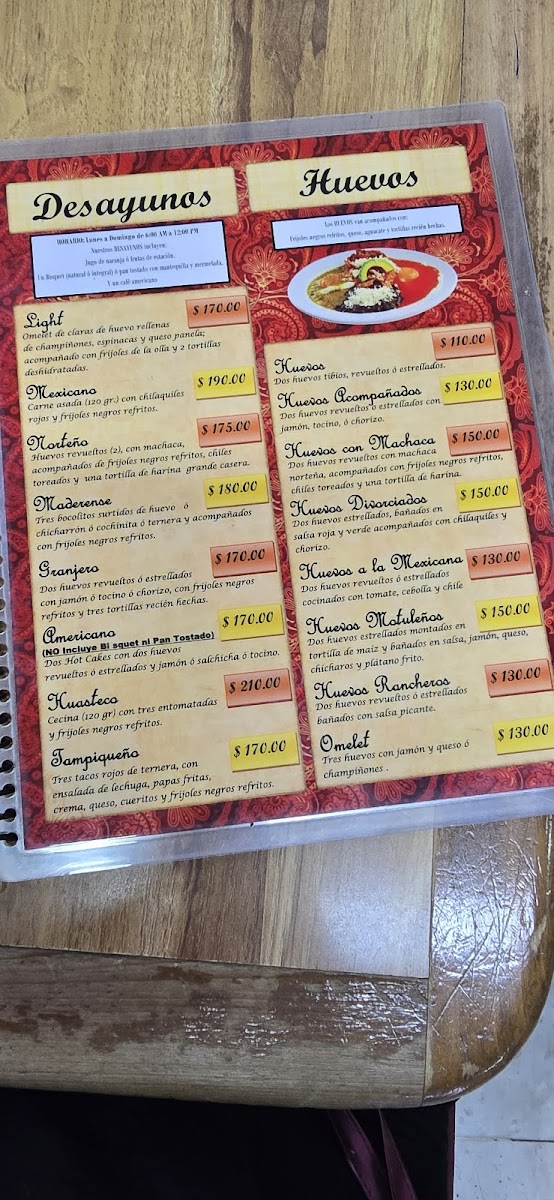 Desayunos
HORARIO: Lunes a Domingo de 6:00 AM a 12:00 PM
Nuestros DESAYUNOS incluyen:
Jugo de naranja ó frutas de estación.
Un Bisquet (natural ó integral) ó pan tostado con mantequilla y mermelada.
Y un café americano
Light
$ 170.00
Omelet de claras de huevo rellenas
de champiñones, espinacas y queso panela;
acompañado con frijoles de la olla y 2 tortillas
deshidratadas.
Mexicano
$ 190.00
Carne asada (120 gr.) con chilaquiles
rojos y frijoles negros refritos.
Norteño
$ 175.00
Huevos revueltos (2), con machaca,
acompañados de frijoles negros refritos, chiles
toreados y una tortilla de harina grande casera.
Maderense
$ 180.00
Tres bocolitos surtidos de huevo ó
chicharrón ó cochinita ó ternera y acompañados
con frijoles negros refritos.
Granjero
$ 170.00
Dos huevos revueltos ó estrellados
con jamón ó tocino ó chorizo, con frijoles negros
refritos y tres tortillas recién hechas.
Americano
$ 170.00
(NO Incluye Bi squet ni Pan Tostado)
Dos Hot Cakes con dos huevos
revueltos ó estrellados y jamón ó salchicha ó tocino.
Huasteco
$ 210.00
Cecina (120 gr) con tres entomatadas
y frijoles negros refritos.
Tampiqueño
$ 170.00
Tres tacos rojos de ternera, con
ensalada de lechuga, papas fritas,
crema, queso, cueritos y frijoles negros refritos.
Huevos
Los HUEVOS van acompañados con:
Frijoles negros refritos, queso, aguacate y tortillas recién hechas.
Huevos
$ 110.00
Dos huevos tibios, revueltos ó estrellados.
Huevos Acompañados
$ 130.00
Dos huevos revueltos ó estrellados con
jamón, tocino, ó chorizo.
Huevos con Machaca
$ 150.00
Dos huevos revueltos con machaca
norteña, acompañados con frijoles negros refritos,
chiles toreados y una tortilla de harina.
Huevos Divorciados
$ 150.00
Dos huevos estrellados, bañados en
salsa roja y verde acompañados con chilaquiles y
chorizo.
Huevos a la Mexicana
$ 130.00
Dos huevos revueltos ó estrellados
cocinados con tomate, cebolla y chile
Huevos Motuleños
$ 150.00
Dos huevos estrellados montados en
tortilla de maiz y bañados en salsa, jamón, queso,
chicharos y plátano frito.
Huevos Rancheros
$ 130.00
Dos huevos revueltos ó estrellados
bañados con salsa picante.
Omelet
$ 130.00
Tres huevos con jamón y queso ó
champiñones .